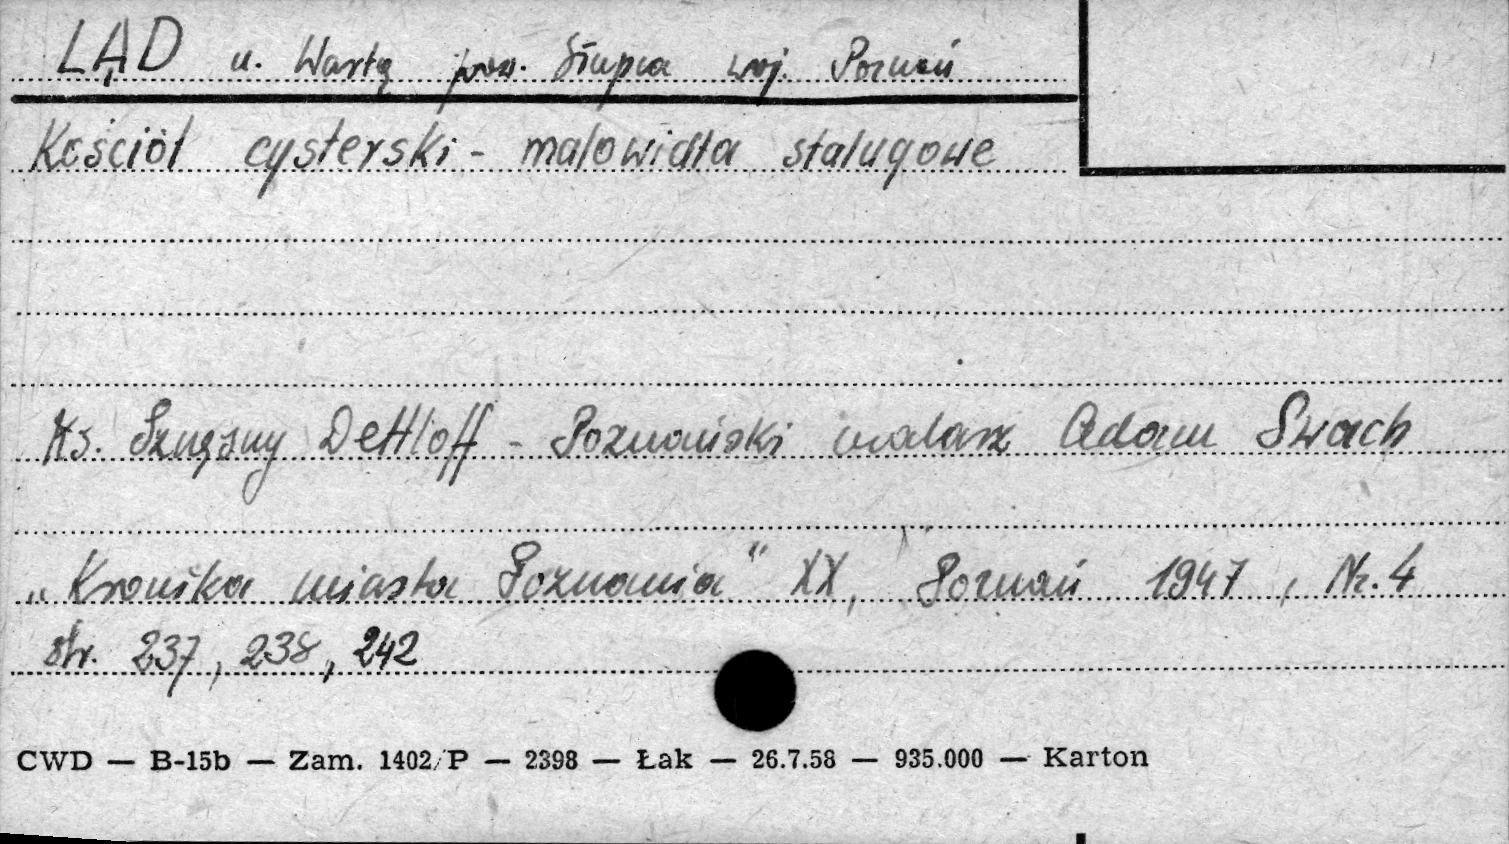 LĄD n. Wartą pow. Słupca woj. Poznań
Kościół cysterski - malowidła stalugowe
Ks. Szczęsny Dettloff - Poznański malarz Adam Swach
„Kronika miasta Poznania" XX, Poznań 1947, Nr. 4
str. 237, 238, 242
CWD — B-15b — Zam. 1402/P — 2398 — Łak — 26.7.58 — 935.000 — Karton